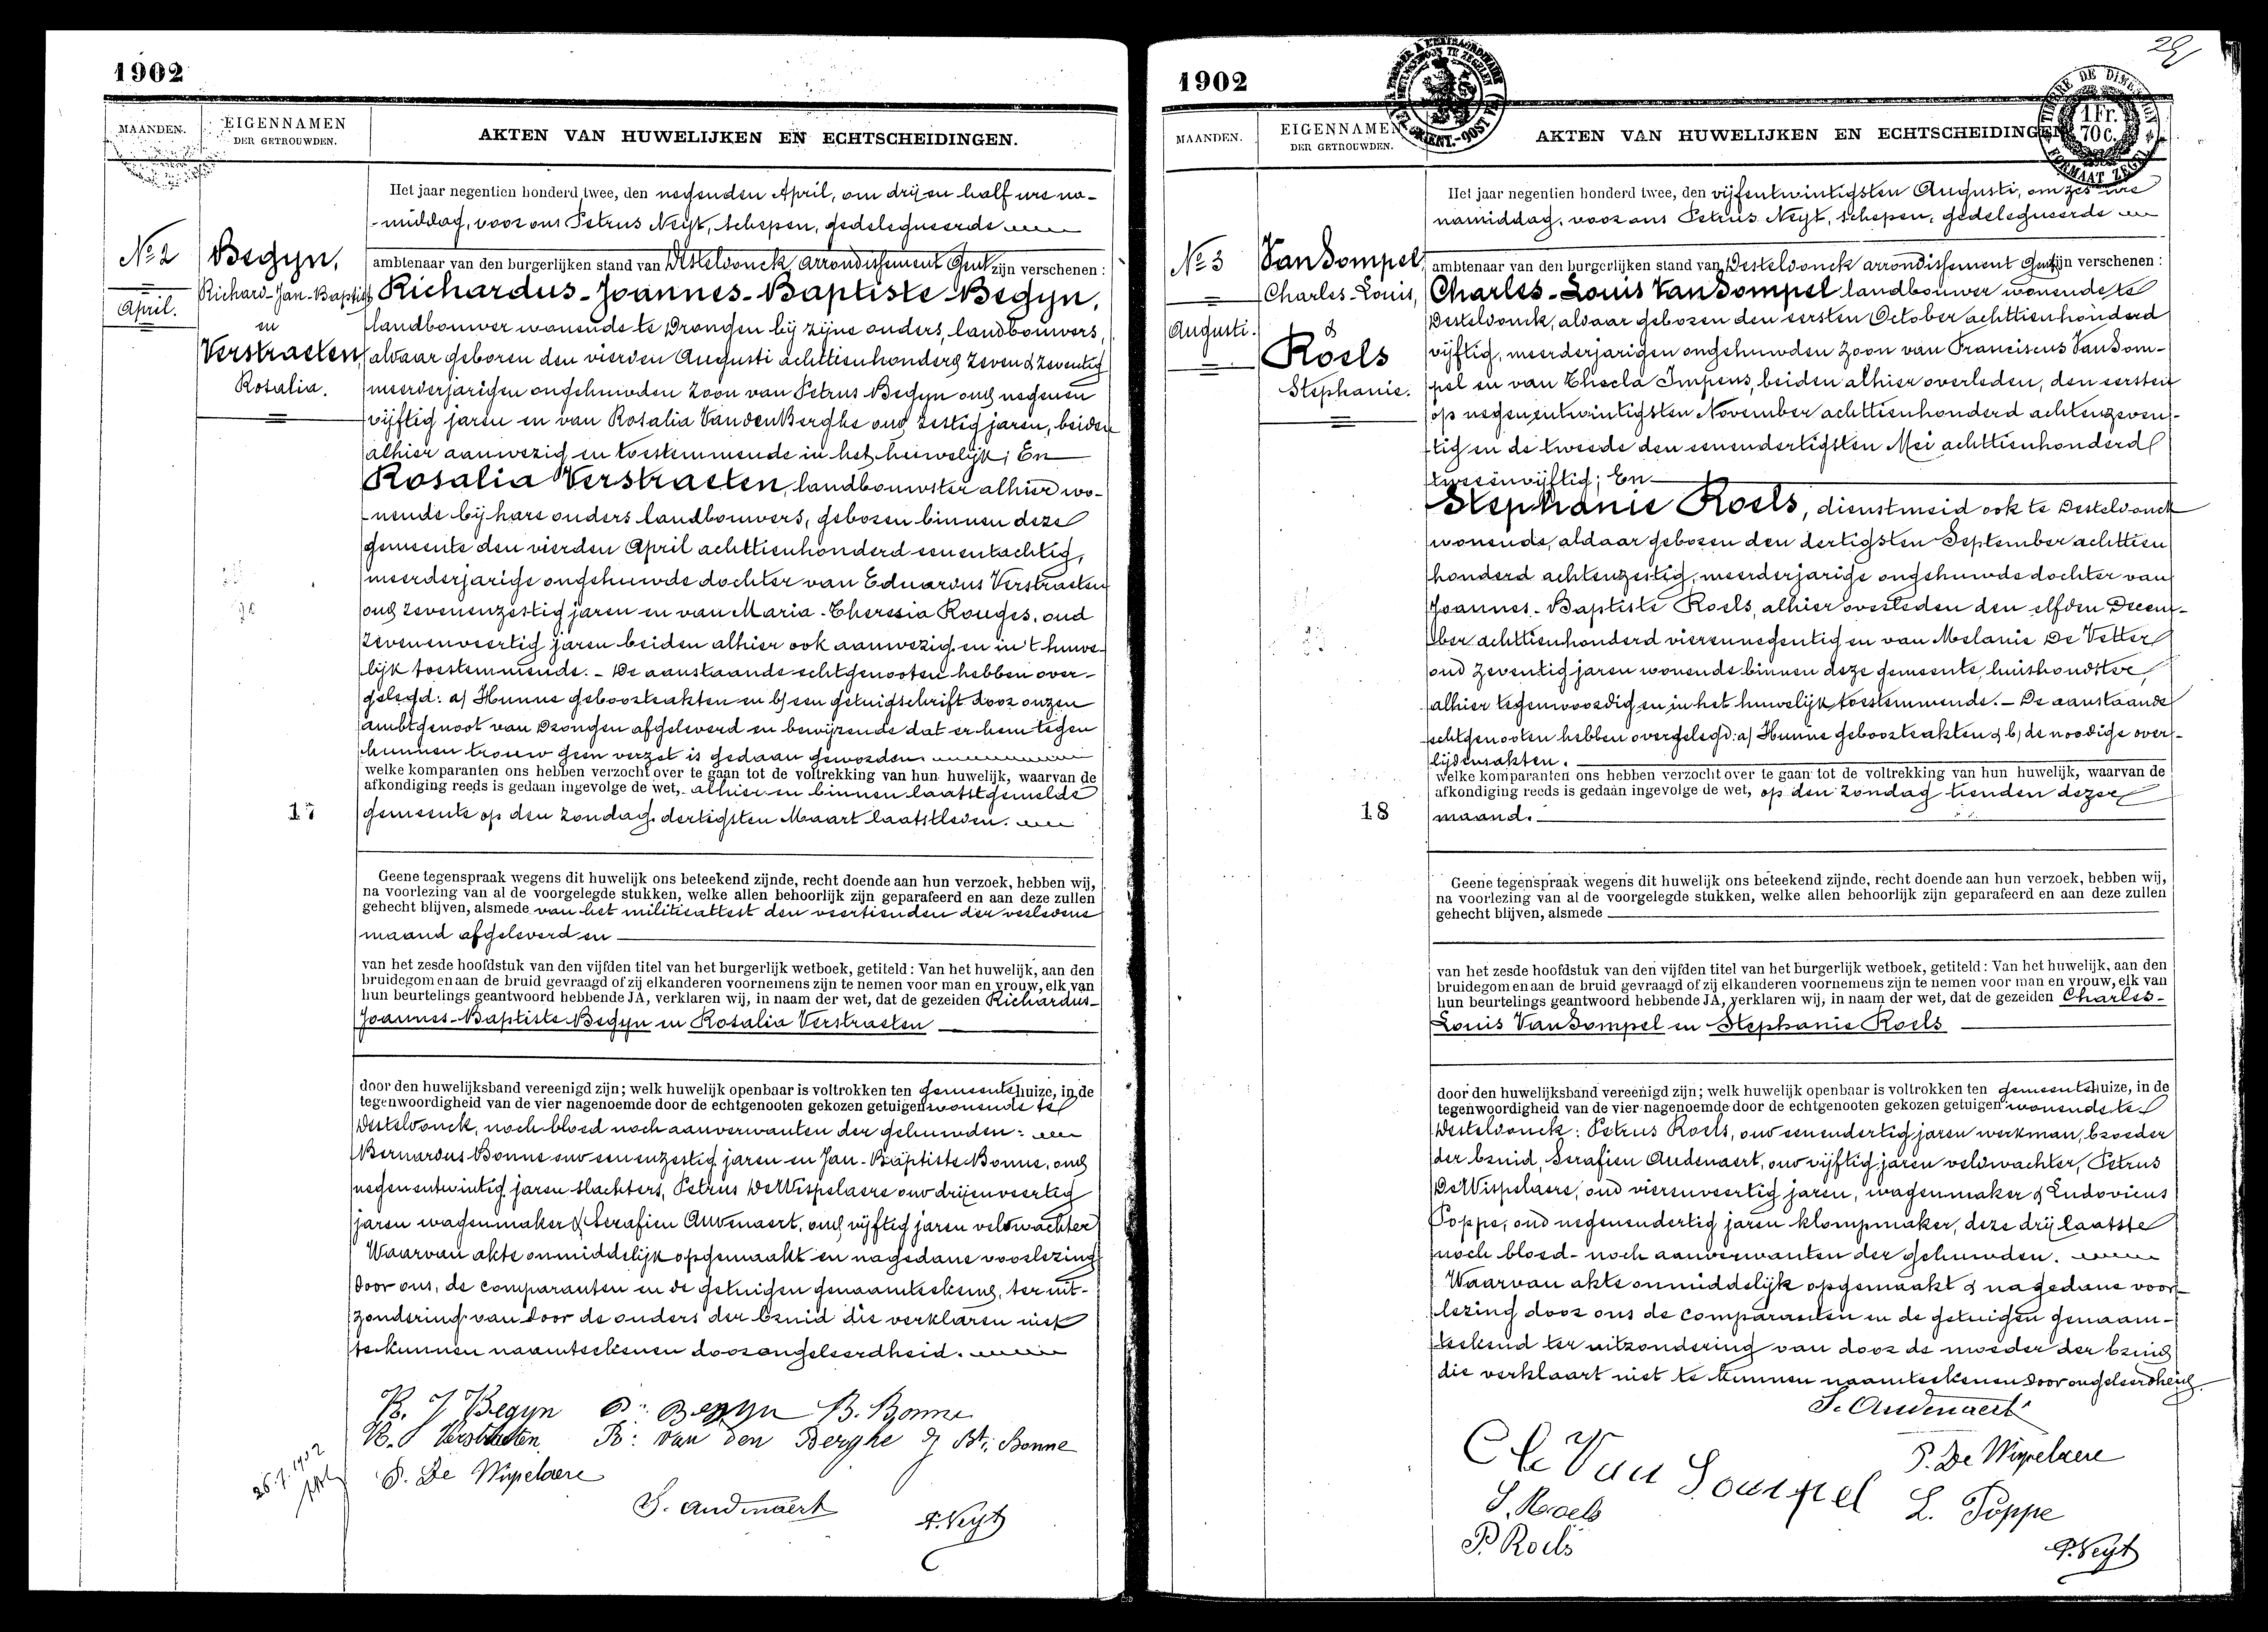 1902
MAANDEN.
EIGENNAMEN
DER GETROUWDEN.
AKTEN VAN HUWELIJKEN EN ECHTSCHEIDINGEN.
Het jaar negentien honderd twee, den negenden April, om drij en half ure na-
-middag, voor ons Petrus Neyt, schepen, gedelegueerde
ambtenaar van den burgerlijken stand van Desteldonck, arrondissement Gent zijn verschenen :
No 2
April.
Begyn,
Richard-Jan-Baptist
en
Verstraeten,
Rosalia.
Richardus-Joannes-Baptiste Begyn,
landbouwer wonende te Drongen bij zijne ouders, landbouwers,
aldaar geboren den vierden Augusti achttienhonderd zeven & zeventig
meerderjarigen ongehuwden zoon van Petrus Begyn oud negenen
vijftig jaren en van Rosalia VandenBerghe oud zestig jaren, beiden
alhier aanwezig en toestemmende in het huwelijk; En
Rosalia Verstraeten, landbouwster alhier wo-
nende bij hare ouders landbouwers, geboren binnen deze
gemeente den vierden April achttienhonderd eenentachtig,
meerderjarige ongehuwde dochter van Eduardus Verstraeten
oud zevenenzestig jaren en van Maria-Theresia Rouges, oud
zevenenveertig jaren beiden alhier ook aanwezig en in 't huwe-
lijk toestemmende. - De aanstaande echtgenooten hebben over-
gelegd: a) Hunne geboorteakten en b) een getuigschrift door onzen
ambtgenoot van Drongen afgeleverd en bewijzende dat er hem tegen
hunnen trouw geen verzet is gedaan geworden
welke komparanten ons hebben verzocht over te gaan tot de voltrekking van hun huwelijk, waarvan de
afkondiging reeds is gedaan ingevolge de wet, alhier en binnen laatstgemelde
17
gemeente op den zondag dertigsten Maart laatstleden.
Geene tegenspraak wegens dit huwelijk ons beteekend zijnde, recht doende aan hun verzoek, hebben wij,
na voorlezing van al de voorgelegde stukken, welke allen behoorlijk zijn geparafeerd en aan deze zullen
gehecht blijven, alsmede van het militieattest den veertienden der verledene
maand afgeleverd en
van het zesde hoofdstuk van den vijfden titel van het burgerlijk wetboek, getiteld : Van het huwelijk, aan den
bruidegom en aan de bruid gevraagd of zij elkanderen voornemens zijn te nemen voor man en vrouw, elk van
hun beurtelings geantwoord hebbende JA, verklaren wij, in naam der wet, dat de gezeiden Richardus-
Joannes-Baptiste Begyn en Rosalia Verstraeten
door den huwelijksband vereenigd zijn; welk huwelijk openbaar is voltrokken ten gemeentehuize, in de
tegenwoordigheid van de vier nagenoemde door de echtgenooten gekozen getuigen wonende te
Desteldonck, noch bloed noch aanverwanten der gehuwden:
Bernardus Bonne oud eenenzestig jaren en Jan-Baptiste Bonne, oud
negenentwintig jaren slachters, Petrus De Wispelaere oud drijenveertig
jaren wagenmaker & Serafien Audenaert, oud vijftig jaren veldwachter
Waarvan akte onmiddelijk opgemaakt en nagedane voorlezing
door ons, de comparanten en de getuigen genaamteekend, ter uit-
zondering van door de ouders der bruid die verklaren niet
te kunnen naamteekenen door ongeleerdheid.
R. J Begyn P. Begyn B. Bonne
R. Verstraeten R: van den Berghe J Bt. Bonne
P. De Wispelaere
S. Audenaert
P. Neyt
26.7.1902
1902
29
1 Fr.
70 c.
FORMAAT ZEGEL
MAANDEN.
EIGENNAMEN
DER GETROUWDEN.
AKTEN VAN HUWELIJKEN EN ECHTSCHEIDINGEN
Het jaar negentien honderd twee, den vijfentwintigsten Augusti, om zes ure
namiddag, voor ons Petrus Neyt, schepen, gedelegueerde
ambtenaar van den burgerlijken stand van Desteldonck arrondissement Gent zijn verschenen :
No 3
Augusti.
VanDompel,
Charles-Louis,
&
Roels
Stephanie.
Charles-Louis VanDompel landbouwer wonende te
Desteldonck, aldaar geboren den eersten October achttienhonderd
vijftig, meerderjarigen ongehuwden zoon van Franciscus VanDom-
pel en van Thecla Impens, beiden alhier overleden, den eersten
op negenentwintigsten November achttienhonderd achtenzeven-
tig en de tweede den eenendertigsten Mei achttienhonderd
tweeenvijftig; En
Stephanie Roels, dienstmeid ook te Desteldonck
wonende, aldaar geboren den dertigsten September achttien
honderd achtenzestig, meerderjarige ongehuwde dochter van
Joannes-Baptiste Roels, alhier overleden den elfden Decem-
ber achttienhonderd vierennegentig en van Melanie De Vetter
oud zeventig jaren wonende binnen deze gemeente, huishoudster,
alhier tegenwoordig en in het huwelijk toestemmende. - De aanstaande
echtgenooten hebben overgelegd: a) Hunne geboorteakten & b) de noodige over-
lijdensakten.
welke komparanten ons hebben verzocht over te gaan tot de voltrekking van hun huwelijk, waarvan de
afkondiging reeds is gedaan ingevolge de wet, op den zondag tienden dezer
18
maand.
Geene tegenspraak wegens dit huwelijk ons beteekend zijnde, recht doende aan hun verzoek, hebben wij,
na voorlezing van al de voorgelegde stukken, welke allen behoorlijk zijn geparafeerd en aan deze zullen
gehecht blijven, alsmede
van het zesde hoofdstuk van den vijfden titel van het burgerlijk wetboek, getiteld : Van het huwelijk, aan den
bruidegom en aan de bruid gevraagd of zij elkanderen voornemens zijn te nemen voor man en vrouw, elk van
hun beurtelings geantwoord hebbende JA, verklaren wij, in naam der wet, dat de gezeiden Charles-
Louis VanDompel en Stephanie Roels
door den huwelijksband vereenigd zijn; welk huwelijk openbaar is voltrokken ten gemeentehuize, in de
tegenwoordigheid van de vier nagenoemde door de echtgenooten gekozen getuigen wonende te
Desteldonck: Petrus Roels, oud eenendertig jaren werkman, broeder
der bruid, Serafien Audenaert, oud vijftig jaren veldwachter, Petrus
DeWispelaere, oud vierenveertig jaren, wagenmaker & Ludovicus
Poppe, oud negenendertig jaren klompmaker, deze drij laatste
noch bloed- noch aanverwanten der gehuwden.
Waarvan akte onmiddelijk opgemaakt & nagedane voor-
lezing door ons de comparanten en de getuigen genaam-
teekend ter uitzondering van door de moeder der bruid
die verklaart niet te kunnen naamteekenen door ongeleerdheid.
S. Audenaert
Ch Van Dompel
P. De Wispelaere
S. Roels
L. Poppe
P. Roels
P. Neyt